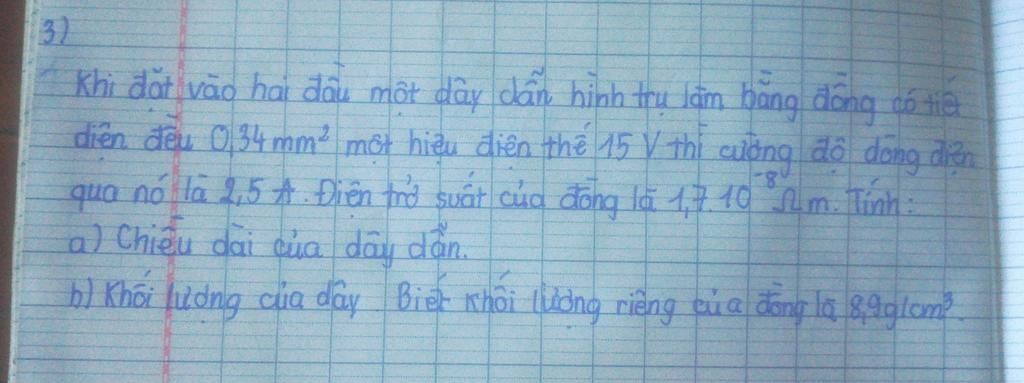 3)
Khi đặt vào hai đầu một dây dẫn hình trụ làm bằng đồng có tiết
diện đều 0,34 mm² một hiệu điện thế 15 V thì cường độ dòng điện
qua nó là 2,5 A. Điện trở suất của đồng là 1,7.10⁻⁸ Ωm. Tính:
a) Chiều dài của dây dẫn.
b) Khối lượng của dây. Biết khối lượng riêng của đồng là 8,9g/cm³.